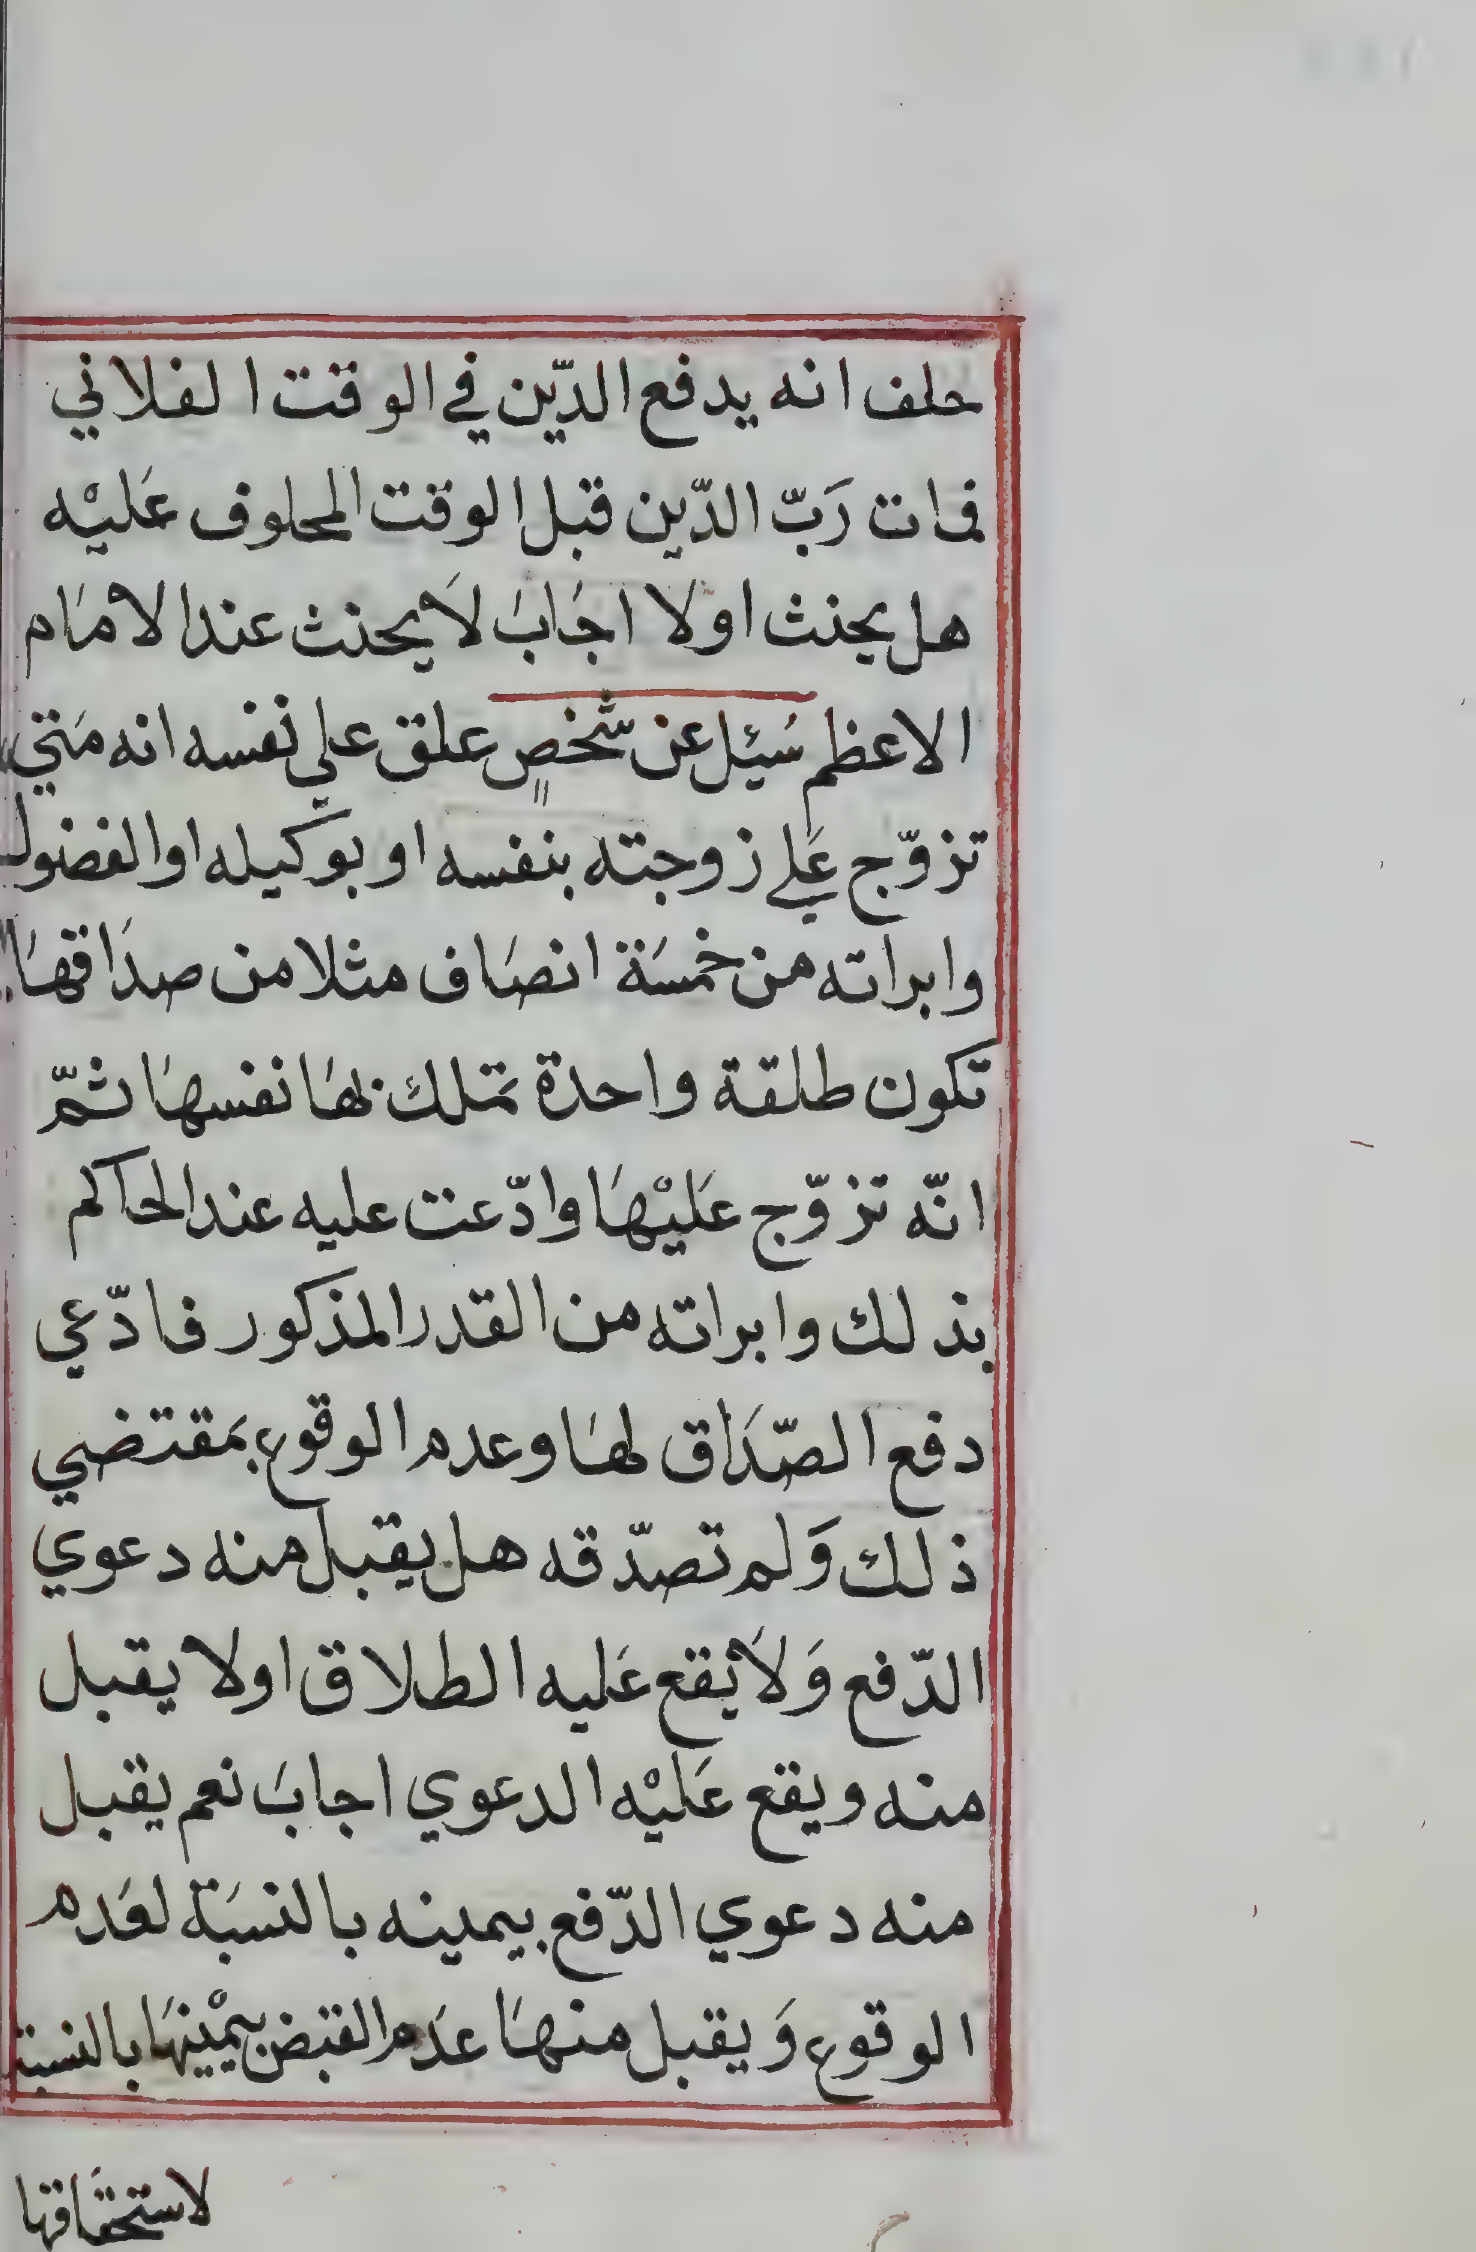 حلف انه يدفع الدّين في الوقت الفلاني
فمات رَبّ الدّين قبل الوقت المحلوف عَليْه
هل يحنث اولا اجَابَ لاَ يحنث عند الامَام
الاعظم سُئِل عن شخصٍ علق علي نفسه انه مَتي
تزوّج عَلي زوجته بنفسه او بوكيله او الفضول
وابراته من خمسَة انصَاف مثلا من صدَاقهَا
تكون طلقة واحدة تملك بهَا نفسهَا ثمّ
انّه تزوّج عَليْهَا وادّعت عليه عند الحاكم
بذلك وابراته من القدر المذكور فادّعي
دفع الصّدَاق لهَا وعدم الوقوع بمَقتضي
ذلك وَلم تصدّقه هل يقبل منه دعوي
الدّفع وَلاَ يقع عَليه الطلاق اولا يقبل
منه ويقع عَليْه الدعوي اجابَ نعم يقبل
منه دعوي الدّفع بيمينه بالنسبَة لعَدم
الوقوع وَيقبل منهَا عدَم القبض بيمْينهَا بالنسبة
لاستحقاقها